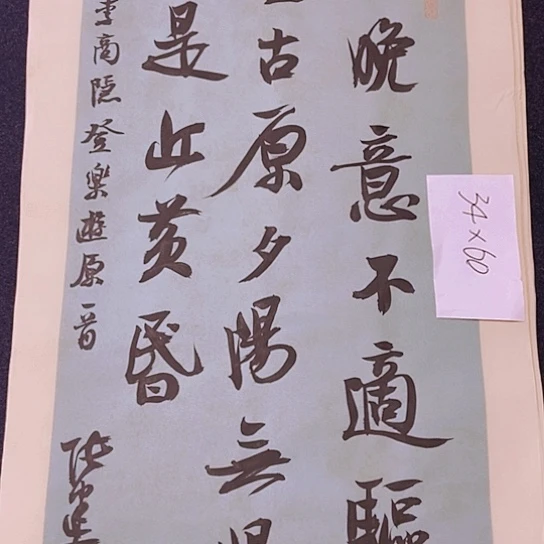 晚意不適驅
古原夕陽無
是近黃昬
李商隱登樂遊原一首
34×60